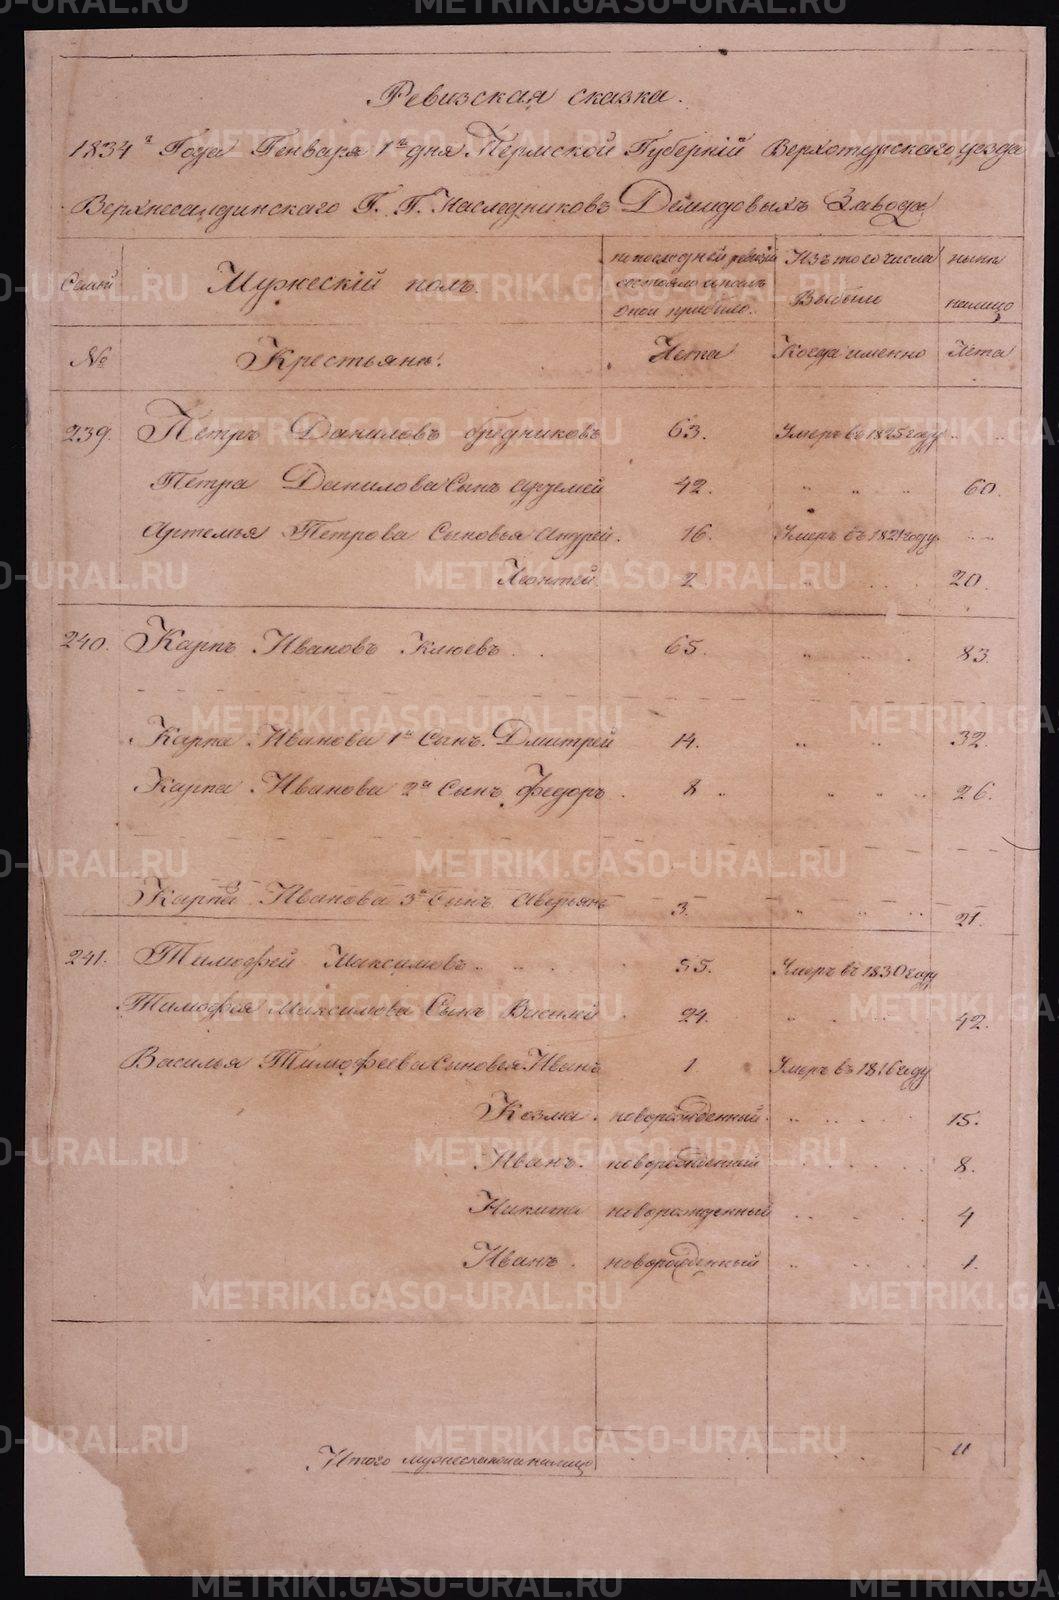 Ревизская сказка.
1834го Года Генваря 1го дня Пермской Губернiй Верхотурского уезда
Верхнесалдинского Г. Г. Наследниковъ Демидовыхъ Завода
Семьи
Мужескiй полъ.
по последней ревизiи
состояло и после
оной прибыло.
Изъ того числа
Выбыли
ныне
налицо
№
Крестьяне.
Лета
Когда именно
Лета
239. Петръ Даниловъ 63. Умеръ въ 1825 году
Петра Данилова Сынъ Артемей 42. 60.
Артемья Петрова Сыновья Андрей. 16. Умеръ въ 1821 году.
Леонтей 2 20.
240. Карпъ Ивановъ Клюевъ 65. 83.
Карпа Иванова 1й Сынъ. Дмитрей 14. 32.
Карпа Иванова 2й Сынъ Федоръ. 8 26.
Карпа Иванова 3й Сынъ Аверьянъ 3. 21.
241. Тимофей Максимовъ 55. Умеръ въ 1830 году
Тимофея Максимова Сынъ Василей 24. 42.
Василья Тимофеева Сыновья Иванъ 1 Умеръ въ 1816 году
Козма. новорожденный. 15.
Иванъ. новорожденный 8.
Никита новорожденный 4
Иванъ. новорожденный 1.
Итого мужеска пола налицо 11
METRIKI.GASO-URAL.RU